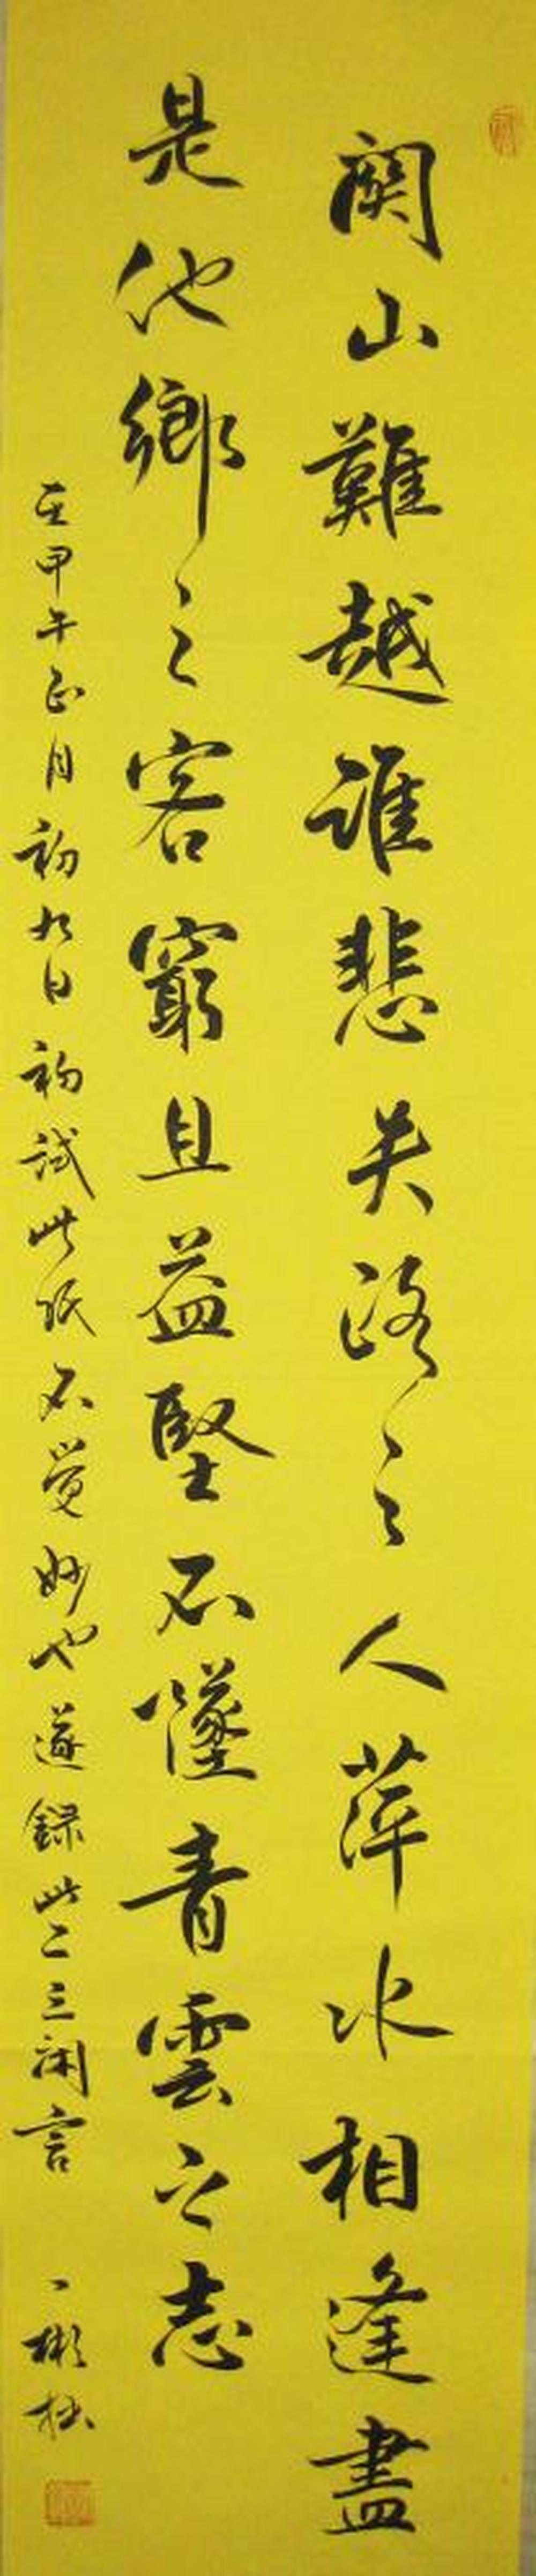 関山難越誰悲失路之人萍水相逢盡
是他鄉之客窮且益堅不墜青雲之志
甲午正月初九日初試此紙不覚妙也遂録此二三閑言 一彬